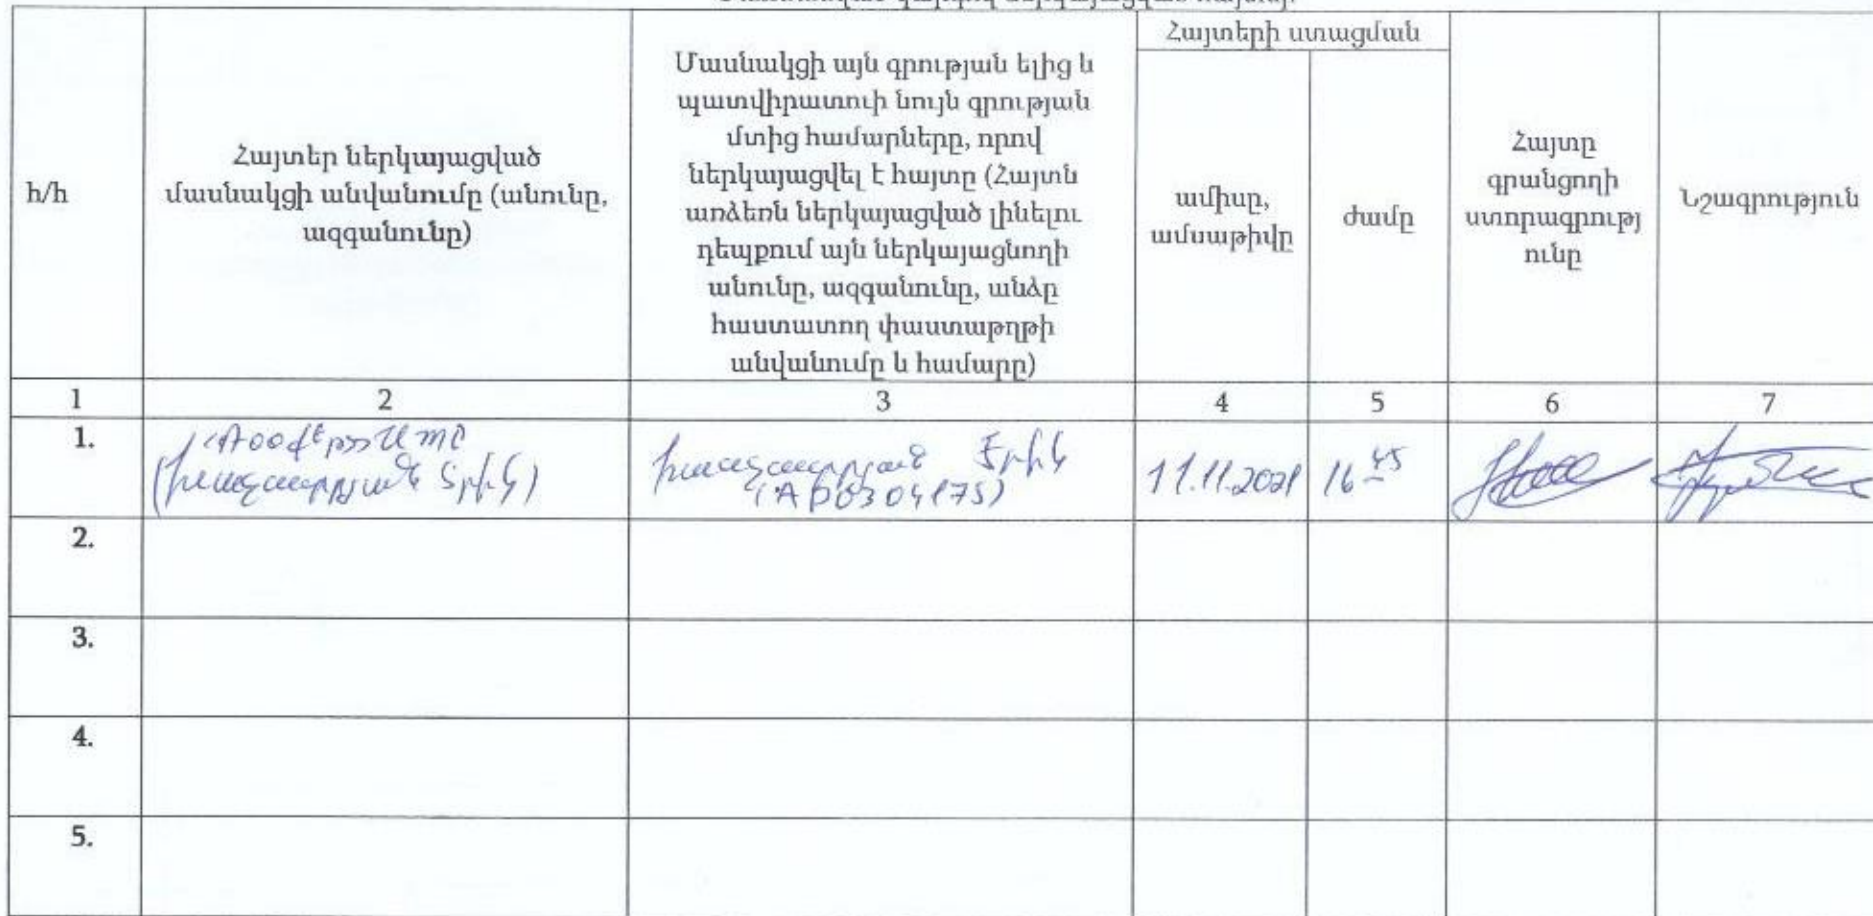 Հայտերի ստացման
h/h
Հայտեր ներկայացված
մասնակցի անվանումը (անունը,
ազգանունը)
Մասնակցի այն գրության ելից և
պատվիրատուի նույն գրության
մտից համարները, որով
ներկայացվել է հայտը (Հայտն
առձեռն ներկայացված լինելու
դեպքում այն ներկայացնողի
անունը, ազգանունը, անձը
հաստատող փաստաթղթի
անվանումը և համարը)
ամիսը,
ամսաթիվը
ժամը
Հայտը
գրանցողի
ստորագրությ
ունը
Նշագրություն
1 2 3 4 5 6 7
1.
11.11.2021 16 45
2.
3.
4.
5.